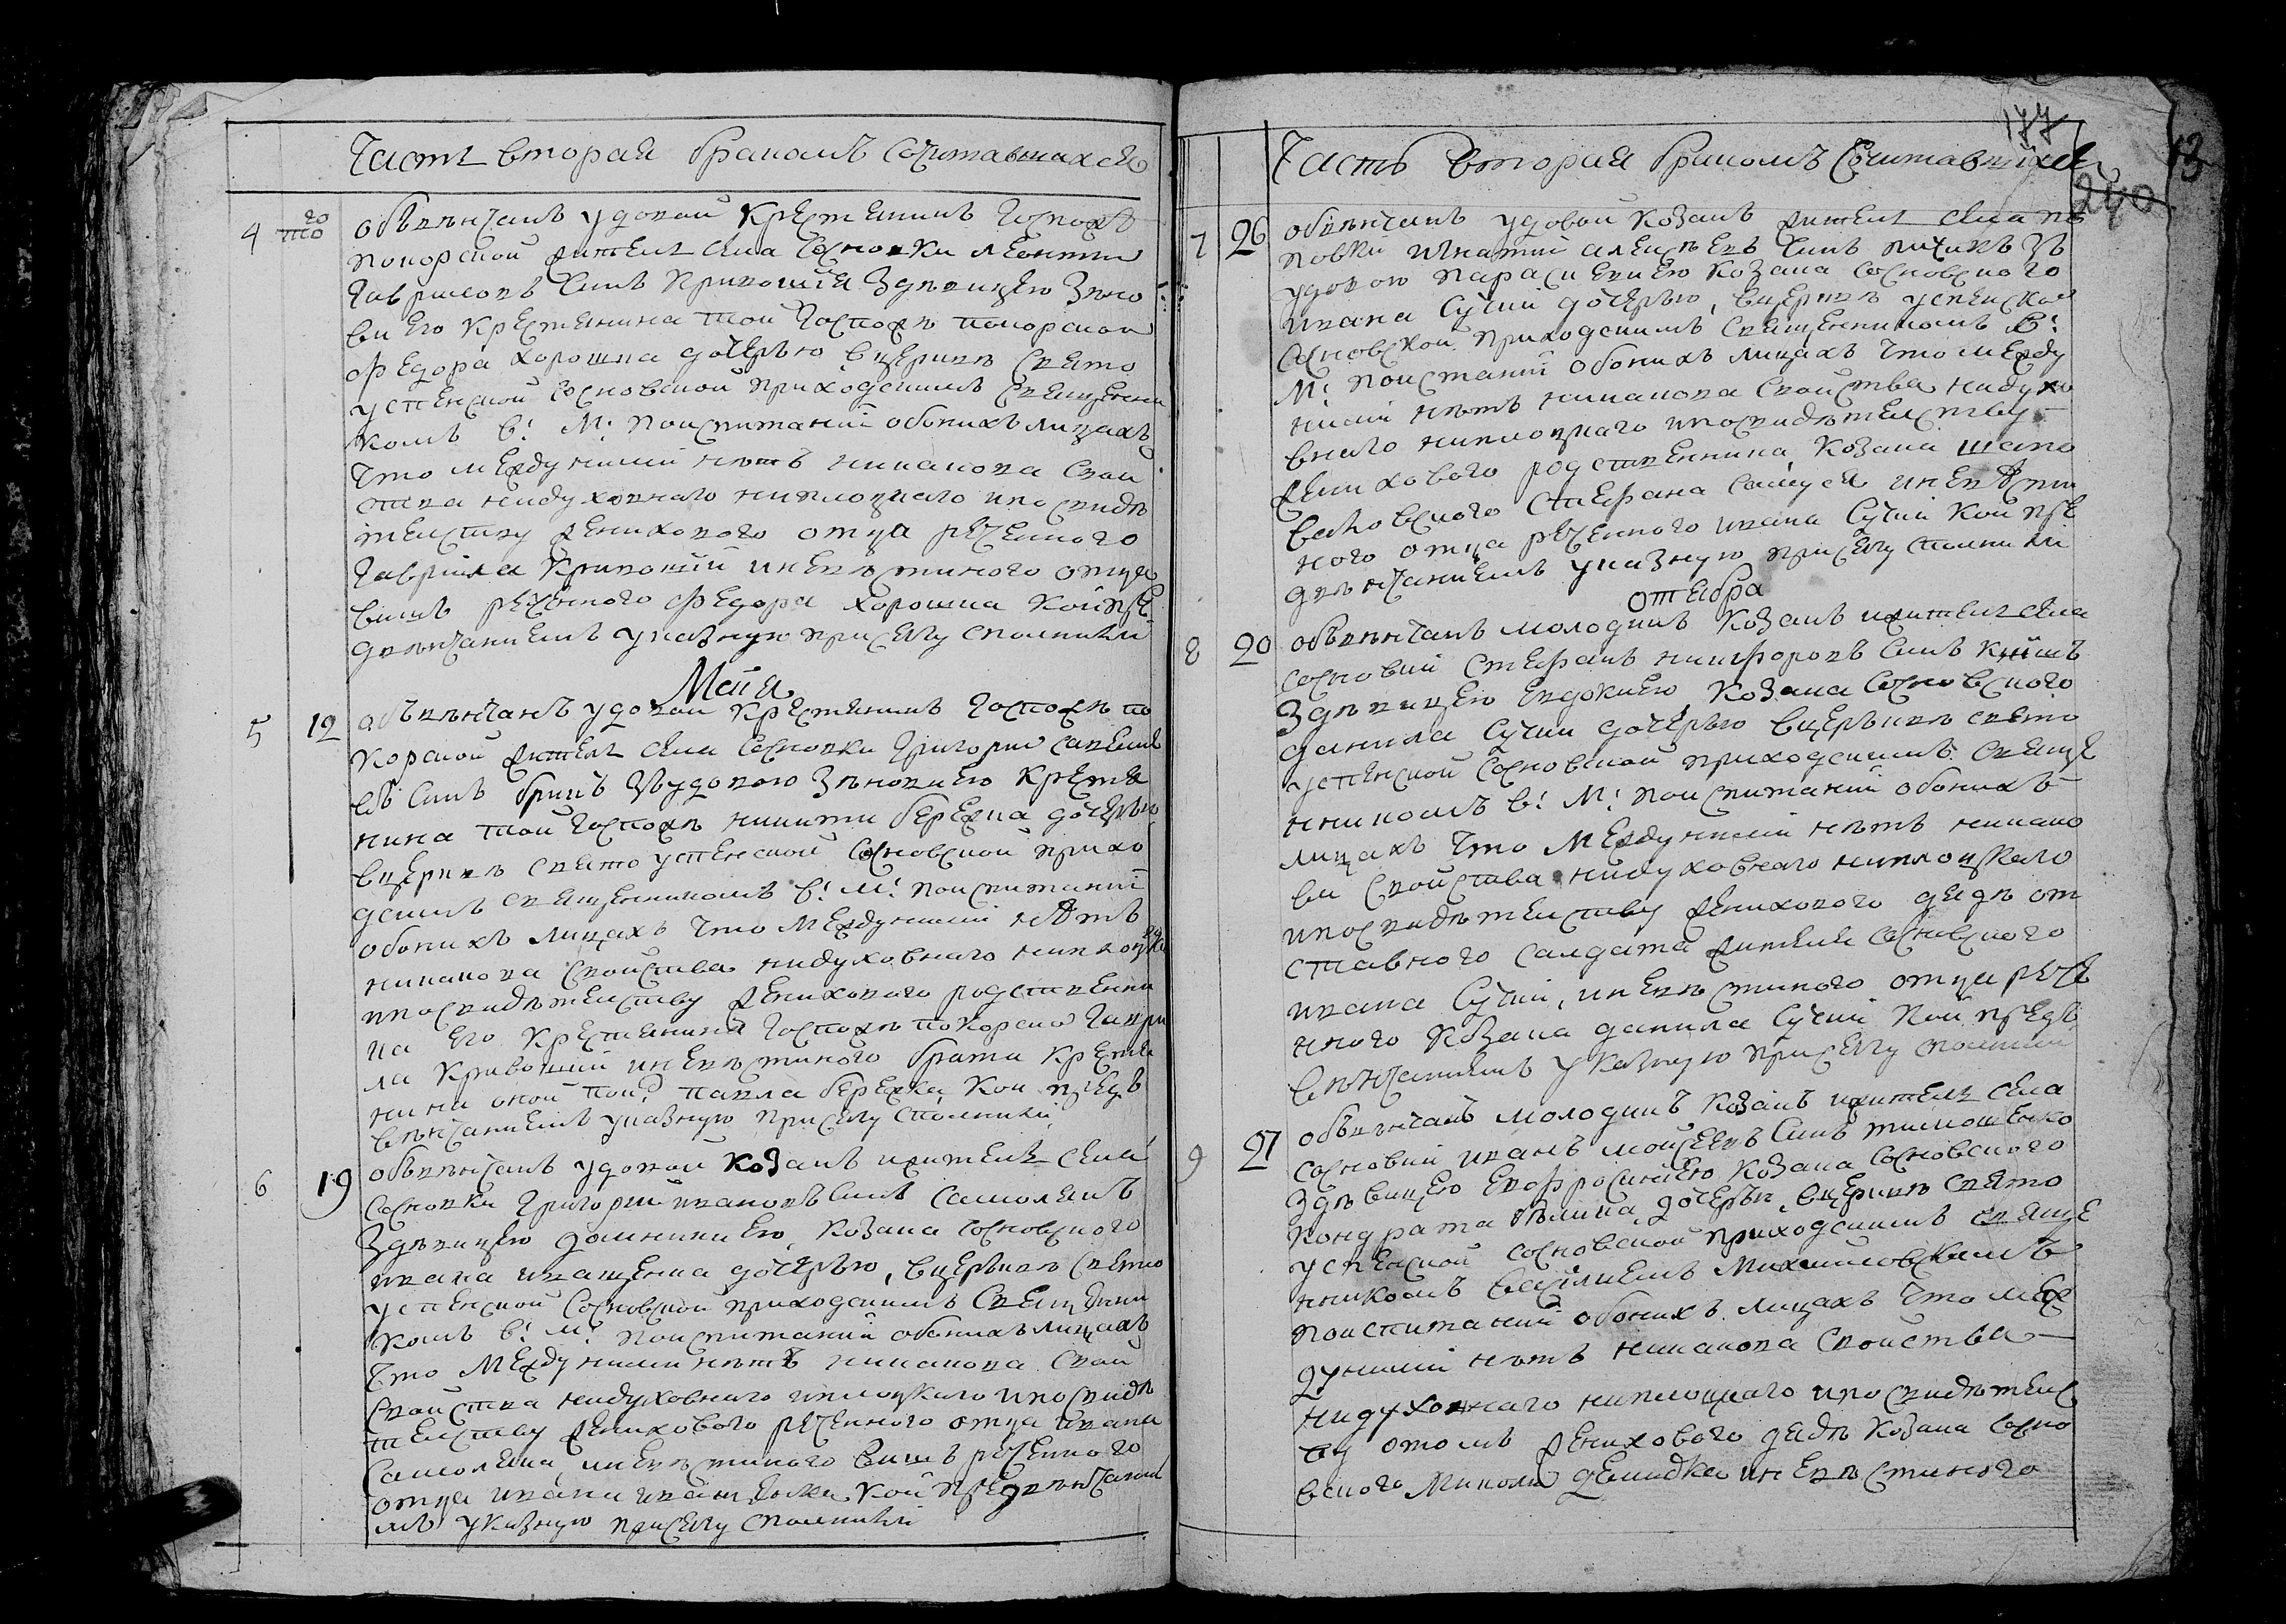 Часть вторая бракомъ сочитавшихся
4 того
обвѣнчанъ удовой крестянинъ госпожѣ
покорской житель села Сосновки леонтии
Гавриловъ синъ Кривошия Здѣвицею Зѣно
виею крестянина той госпожѣ покорской
Федора хорошка дочерью вцерквѣ Свято
успенской Сосновской приходскимъ Священни
комъ В: М: поиспитаний обоихъ лицахъ
что между ними нѣтъ никакова свой
ства нидуховнаго ниплоцкаго ипосвидѣ
телству женихового отца реченного
Гавриила Кривошии иневѣстиного отца
вишъ реченного Федора хорошка кой пре
двѣнчаниемъ указную присягу сполнили
Мая
5 12
обвѣнчанъ удовой крестянинъ госпожѣ по
корской житель села Сосновки Григорий савели
евъ синъ Зъудовою Зѣновиею крестя
нина той госпожѣ никити бережка дочерью
вцерквѣ свято успенской Сосновской прихо
дскимъ священникомъ В: М: поиспитаний
обоихъ лицахъ что между ними нѣтъ
никакова свойства нидуховнаго ниплоцка
ипосвидѣтелству женихового родственни
ка его крестянина госпожѣ покорской Гаври
ла Кривошии иневѣстиного брата крестя
нина оной павла бережка кои предъ
вѣнчаниемъ указную присягу сполнили
6 19
обвѣнчанъ удовой козакъ жителъ села
Сосновки Григорий ивановъ синъ Самоленъ
Здѣвицею домникиею козака сосновского
ивана иващенка дочерью, вцерквѣ свято
успенской Сосновской приходскимъ Священни
комъ В: М: поиспитаний обоихъ лицахъ
что между ними нѣтъ никакова свой
свойства нидуховнаго иплоцкаго ипосвидѣ
телству женихового реченного отца ивана
Самолена иневѣстиного вишъ реченного
отца ивана иващенка кой предвѣнчание
мъ указную присягу сполнили
177
Часть вторая бракомъ сочитавшихся
13
240
7 26
обвѣнчанъ удовой козакъ житель села
Игнатий алексѣевъ синъ Зъ
удовою параскевиею козака сосновского
ивана Сучки дочерью, вцерквѣ успенской
Сосновской приходскимъ священникомъ В:
М: поиспитаний обоихъ лицахъ что между
ними нѣтъ никакова свойства нидухо
внаго ниплоцкаго ипосвидѣтелству
женихового родственника козака
Стефана иневѣсти
ного отца реченного ивана Сучки кои пре
двѣнчаниемъ указную присягу сполнили
октебра
8 20
обвѣнчанъ молодикъ козакъ жителъ села
сосновки Стефанъ никифоровъ синъ
Здѣвицею евдокиею козака Сосновского
данила Сучки дочерью вцерквѣ свято
успенской Сосновской приходскимъ свяще
нникомъ В: М: поиспитаний обоихъ
лицахъ что между ними нѣтъ никако
ва свойства нидуховнаго ниплоцкаго
ипосвидѣтелству женихового дядѣ от
ставного салдата жителя сосновского
ивана Сучки, иневѣстиного отца рече
нного козака данила Сучки кои предъ
вѣнчаниемъ указную присягу сполнили
9 27
обвѣнчанъ молодикъ козакъ жителъ села
сосновки иванъ мойсеевъ синъ тимошенко
Здѣвицею евфросиниею козака сосновского
кондрата дочерью вцерквѣ свято
успенской сосновской приходскимъ свяще
нникомъ василиемъ Михайловскимъ
поиспитаний обоихъ лицахъ что меж
ду ними нѣтъ никакова свойства
нидуховнаго ниплоцкаго ипосвидѣтелс
тву отомъ женихового дядѣ козака сосно
вского Миколи демидка иневѣстиного